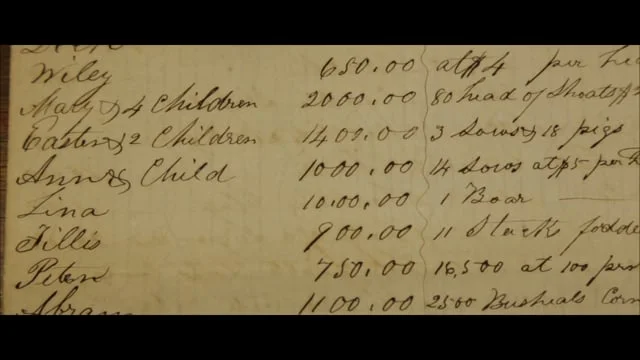 Wiley 650.00 at $4 per
Mary & 4 Children 2000.00 80 head of Shoats
Easter & 2 Children 1400.00 3 Sows & 18 pigs
Ann & Child 1000.00 14 Sows at $5 per
Lina 1000.00 1 Boar
Fillis 900.00 11 Stacks
Peter 750.00 16,500 at 100
Abram 1100.00 2500 Busheals Corn